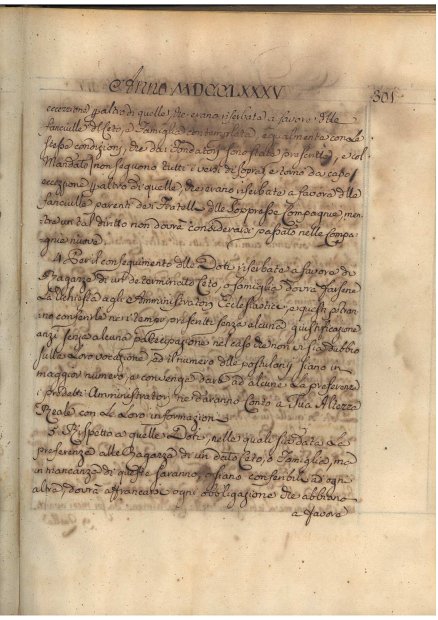 Anno MDCCLXXXV 301
eccezzione peraltro di quelle, che erano riserbate a favore delle
fanciulle di Ceto, o Famiglia contemplata, egualmente con le
stesse condizioni, che dai Fondatori sono state prescritte, e col
non seguono tutti i versi di sopra, e torno da capo
eccezzione peraltro di quelle, che erano riserbate a favore delle
fanciulle parenti dei Fratelli delle Soppresse Compagnie, men
tre un tal diritto non dovrà considerarsi passato nelle Compa-
gnie nuove.
4. Per il conseguimento delle Doti riserbate a favore di
Ragazze di un determinato Ceto, o famiglia dovrà farsene
La richiesta agli Amministratori Ecclesiastici, e questi potran
no conferirle nei tempi prescritti senza alcuna giustificazione
anzi senza alcuna partecipazione nel caso che non vi sia dubbio
sulla Loro vocazione, ed il numero delle postulanti siano in
maggior numero, e convenga dare ad alcune La preferenza
i predetti Amministratori ne daranno Conto a Sua Altezza
Reale con Le Loro informazioni.
5. Rispetto a quelle Doti, nelle quali sia data La
preferenza alle Ragazze di un dato Ceto, o Famiglia, ma
in mancanza di queste saranno, o siano conferibili ad ogni
altra, dovrà affrancarsi ogni obbligazione che abbiano
a favore